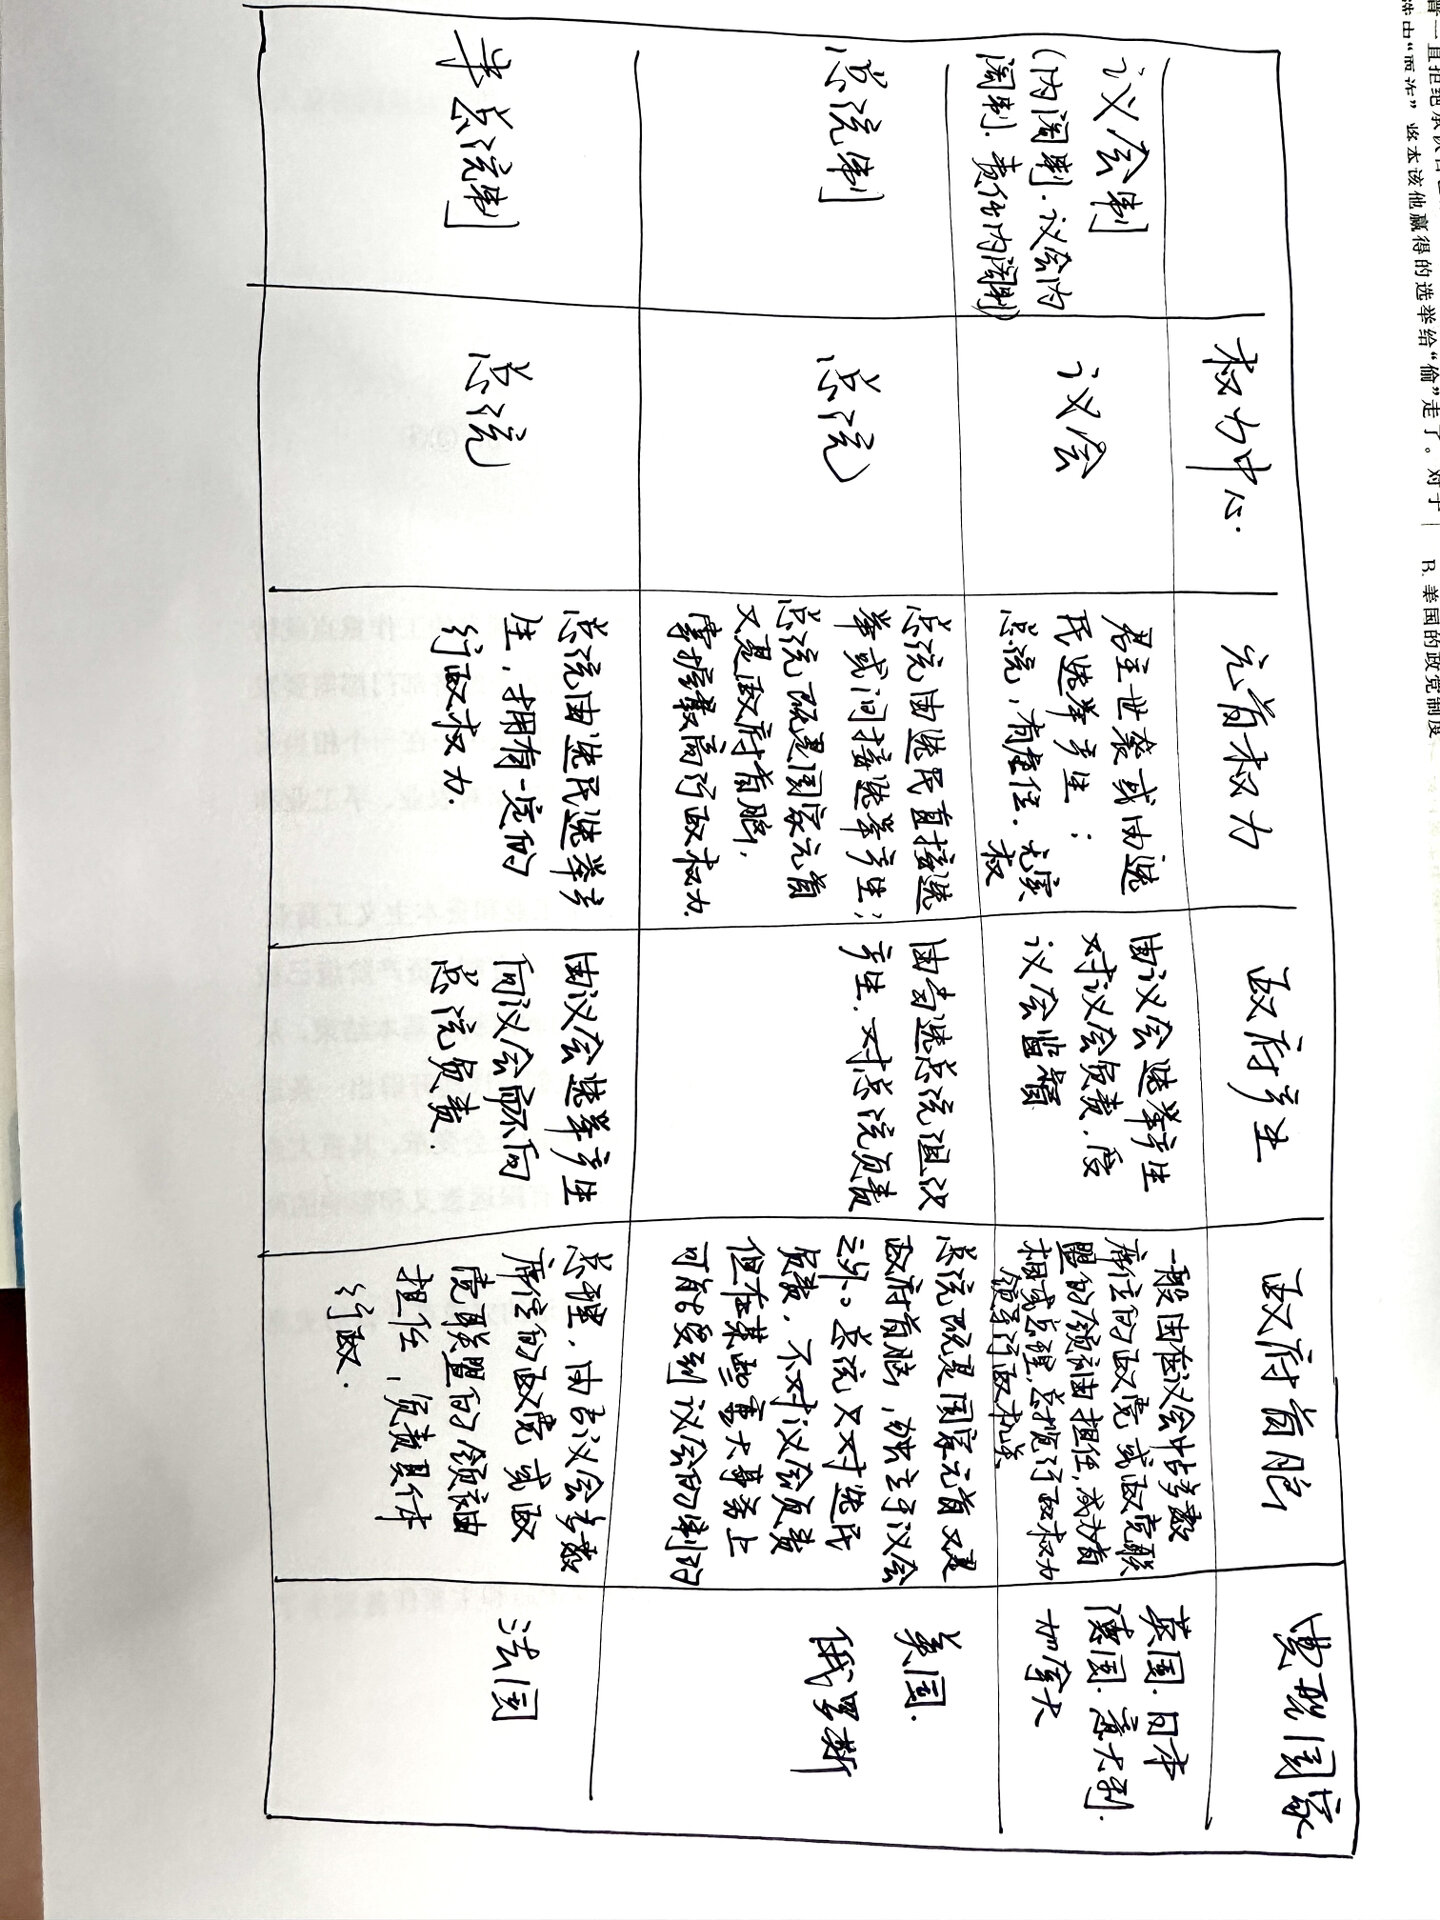 权力中心.
元首权力
政府产生
政府首脑
典型国家
议会制
(内阁制.议会内
阁制.责任内阁制)
议会
君主世袭或由选
民选举产生;
总统,有虚位.无实
权
由议会选举产生
对议会负责.受
议会监督
一般由在议会中占多数
席位的政党或政党联
盟的领袖担任,成为首
相或总理,总揽行政权力
领导行政机关
英国.日本
德国.意大利.
加拿大
总统制
总统
总统由选民直接选
举或间接选举产生;
总统既是国家元首
又是政府首脑,
掌握最高行政权力.
由当选总统组织
产生.对总统负责
总统既是国家元首又是
政府首脑,独立于议会
之外。总统又对选民
负责,不对议会负责
但在某些重大事务上
可能受到议会的制约
美国.
俄罗斯
半总统制
总统
总统由选民选举产
生,拥有一定的
行政权力.
由议会选举产生
向议会而不向
总统负责.
总理,由占议会多数
席位的政党或政
党联盟的领袖
担任,负责具体
行政.
法国
将本该他赢得的选举给“偷”走了。对于
B.美国的政党制度